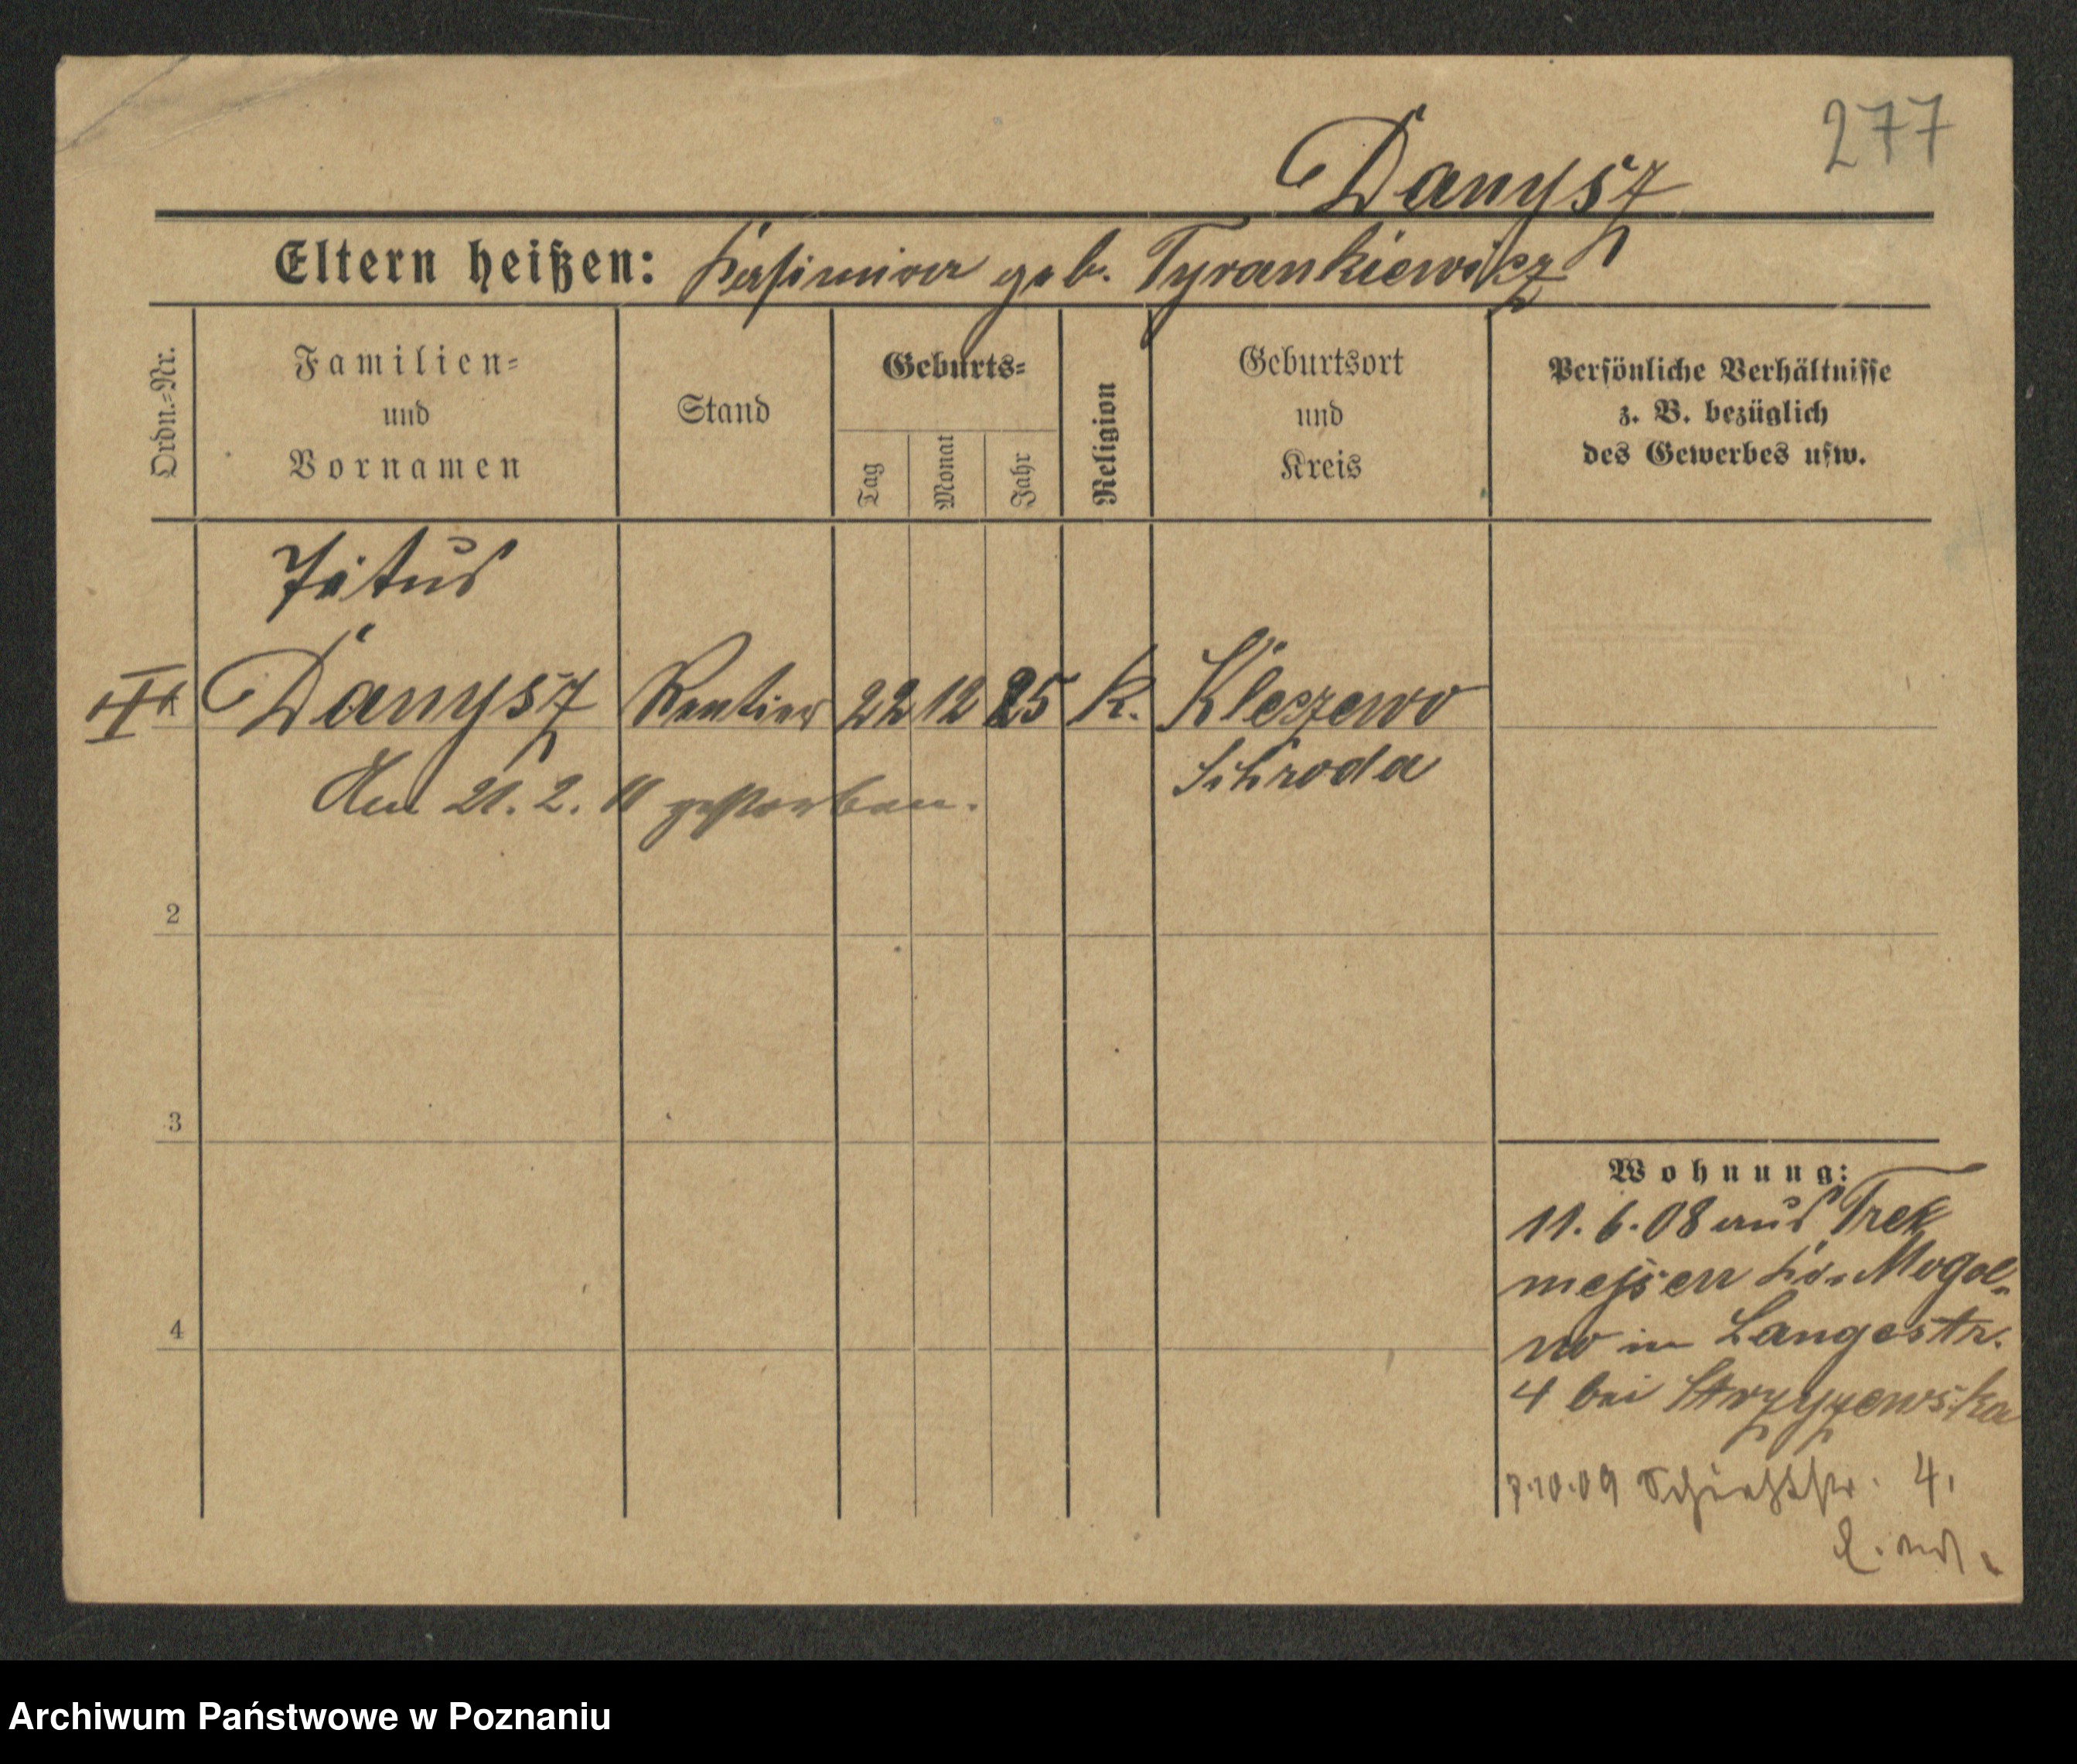 277
Danysz
Eltern heißen: Kasimira geb. Tyrankiewicz
Ordn.-Nr.
Familien-
und
Vornamen
Stand
Geburts-
Tag
Monat
Jahr
Religion
Geburtsort
und
Kreis
Persönliche Verhältnisse
z. B. bezüglich
des Gewerbes usw.
Titus
Danysz Rentier 22 12 25 K. Kleszewo
Schroda
Am 21. 2. 11 gestorben.
2
3
4
Wohnung:
11. 6. 08 aus Tre
messen Mogil-
no in Langestr.
4 bei Strzyzewska
.10.09 4.
Archiwum Państwowe w Poznaniu